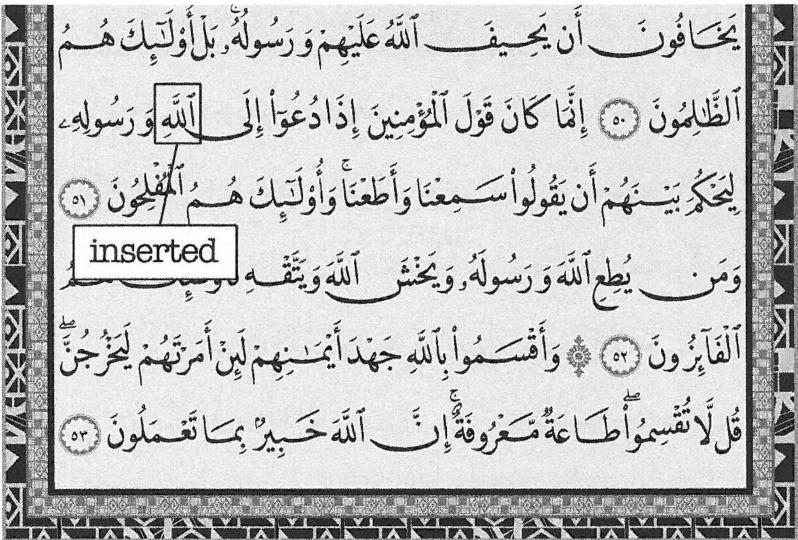 يَخَافُونَ أَن يَحِيفَ ٱللَّهُ عَلَيْهِمْ وَرَسُولُهُۥۚ بَلْ أُوْلَـٰٓئِكَ هُمُ
ٱلظَّـٰلِمُونَ ٥٠ إِنَّمَا كَانَ قَوْلَ ٱلْمُؤْمِنِينَ إِذَا دُعُوٓاْ إِلَى ٱللَّهِ وَرَسُولِهِۦ
لِيَحْكُمَ بَيْنَهُمْ أَن يَقُولُواْ سَمِعْنَا وَأَطَعْنَاۚ وَأُوْلَـٰٓئِكَ هُمُ ٱلْمُفْلِحُونَ ٥١
inserted
وَمَن يُطِعِ ٱللَّهَ وَرَسُولَهُۥ وَيَخْشَ ٱللَّهَ وَيَتَّقْهِ
ٱلْفَآئِزُونَ ٥٢ ۞ وَأَقْسَمُواْ بِٱللَّهِ جَهْدَ أَيْمَـٰنِهِمْ لَئِنْ أَمَرْتَهُمْ لَيَخْرُجُنَّۖ
قُل لَّا تُقْسِمُواْۖ طَاعَةٌ مَّعْرُوفَةٌۚ إِنَّ ٱللَّهَ خَبِيرٌۢ بِمَا تَعْمَلُونَ ٥٣